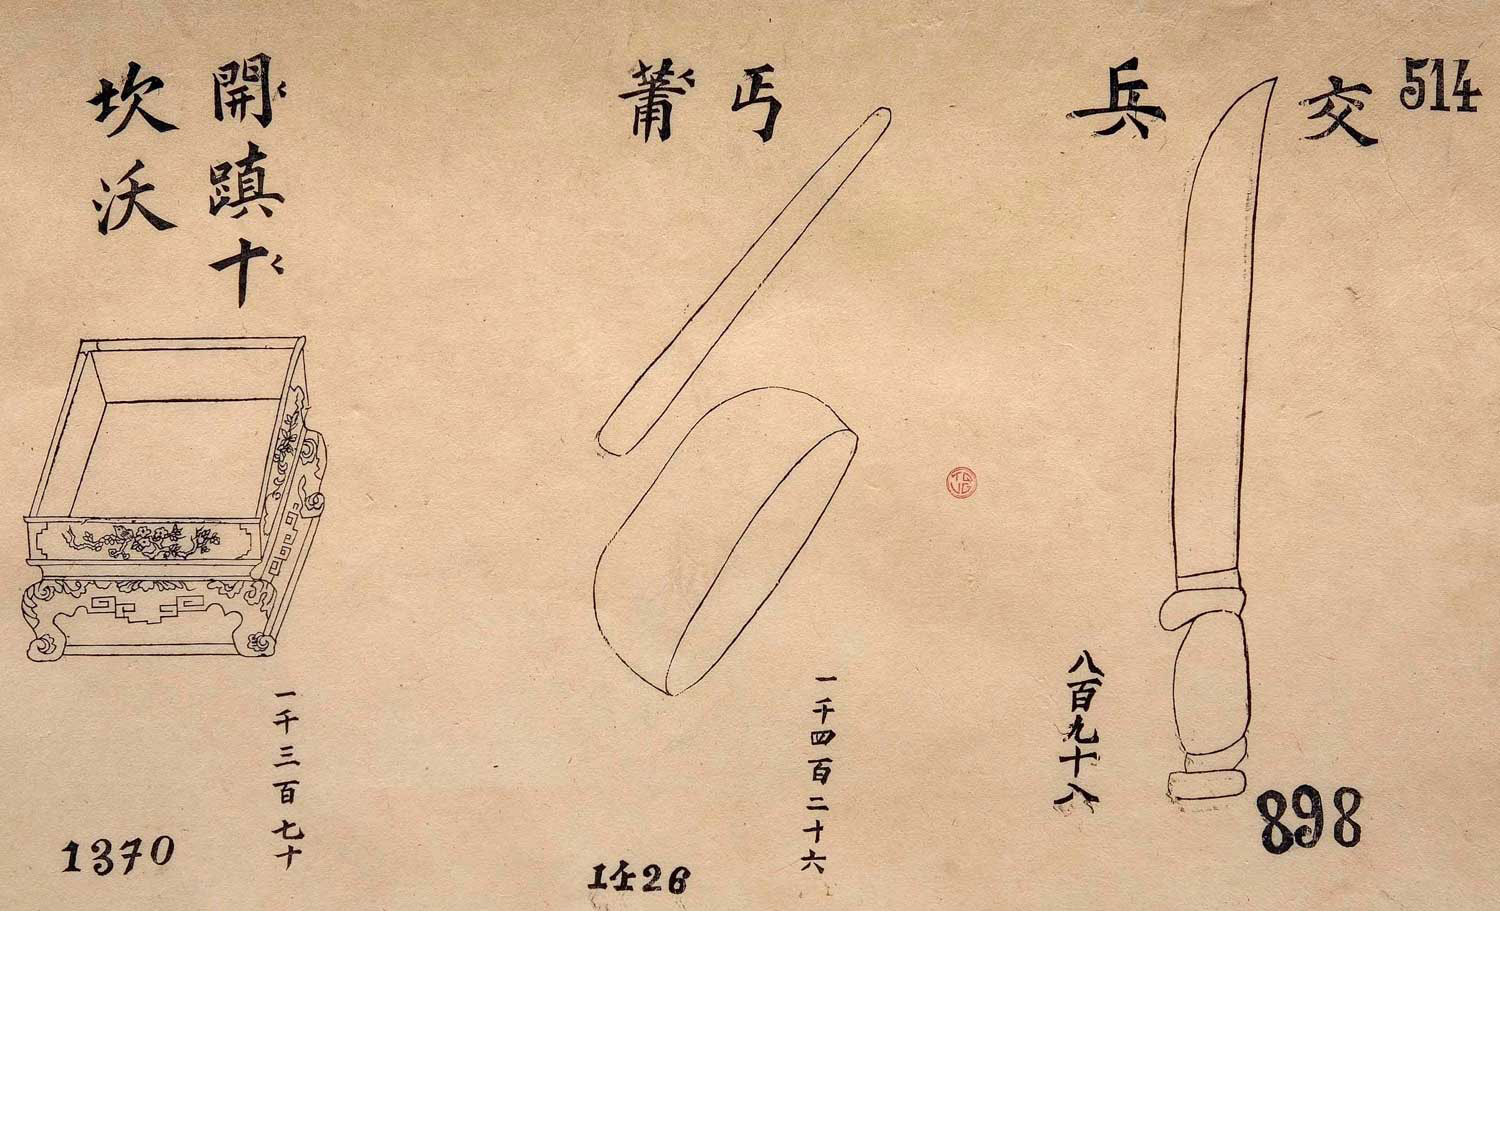 514
交
兵
八百九十八
898
丐
一千四百二十六
1426
開蹎十
坎沃
一千三百七十
1370